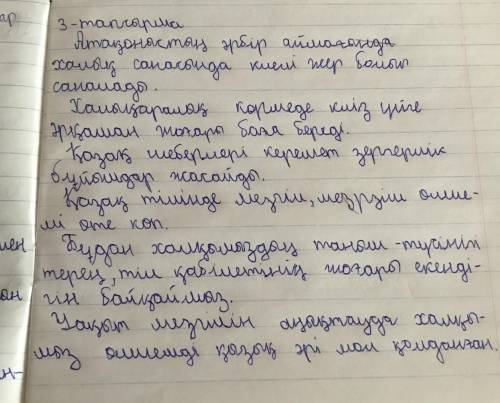 3-тапсырма
Атақоныстың әрбір аймағында
халық санасында киелі жер болып
саналады.
Халықаралық көрмеде киіз үйге
әрқашан жоғары баға береді.
Қазақ шеберлері керемет зергерлік
бұйымдар жасайды.
Қазақ тілінде мезгіл, мезгіл өлше-
мі өте көп.
Бұдан халқымыздың таным-түрінің
терең, тіл қабілетінің жоғары екенді-
гін байқаймыз.
Уақыт мезгілін анықтауда халқы-
мыз өлшемді қазық әрі мол қолданған.